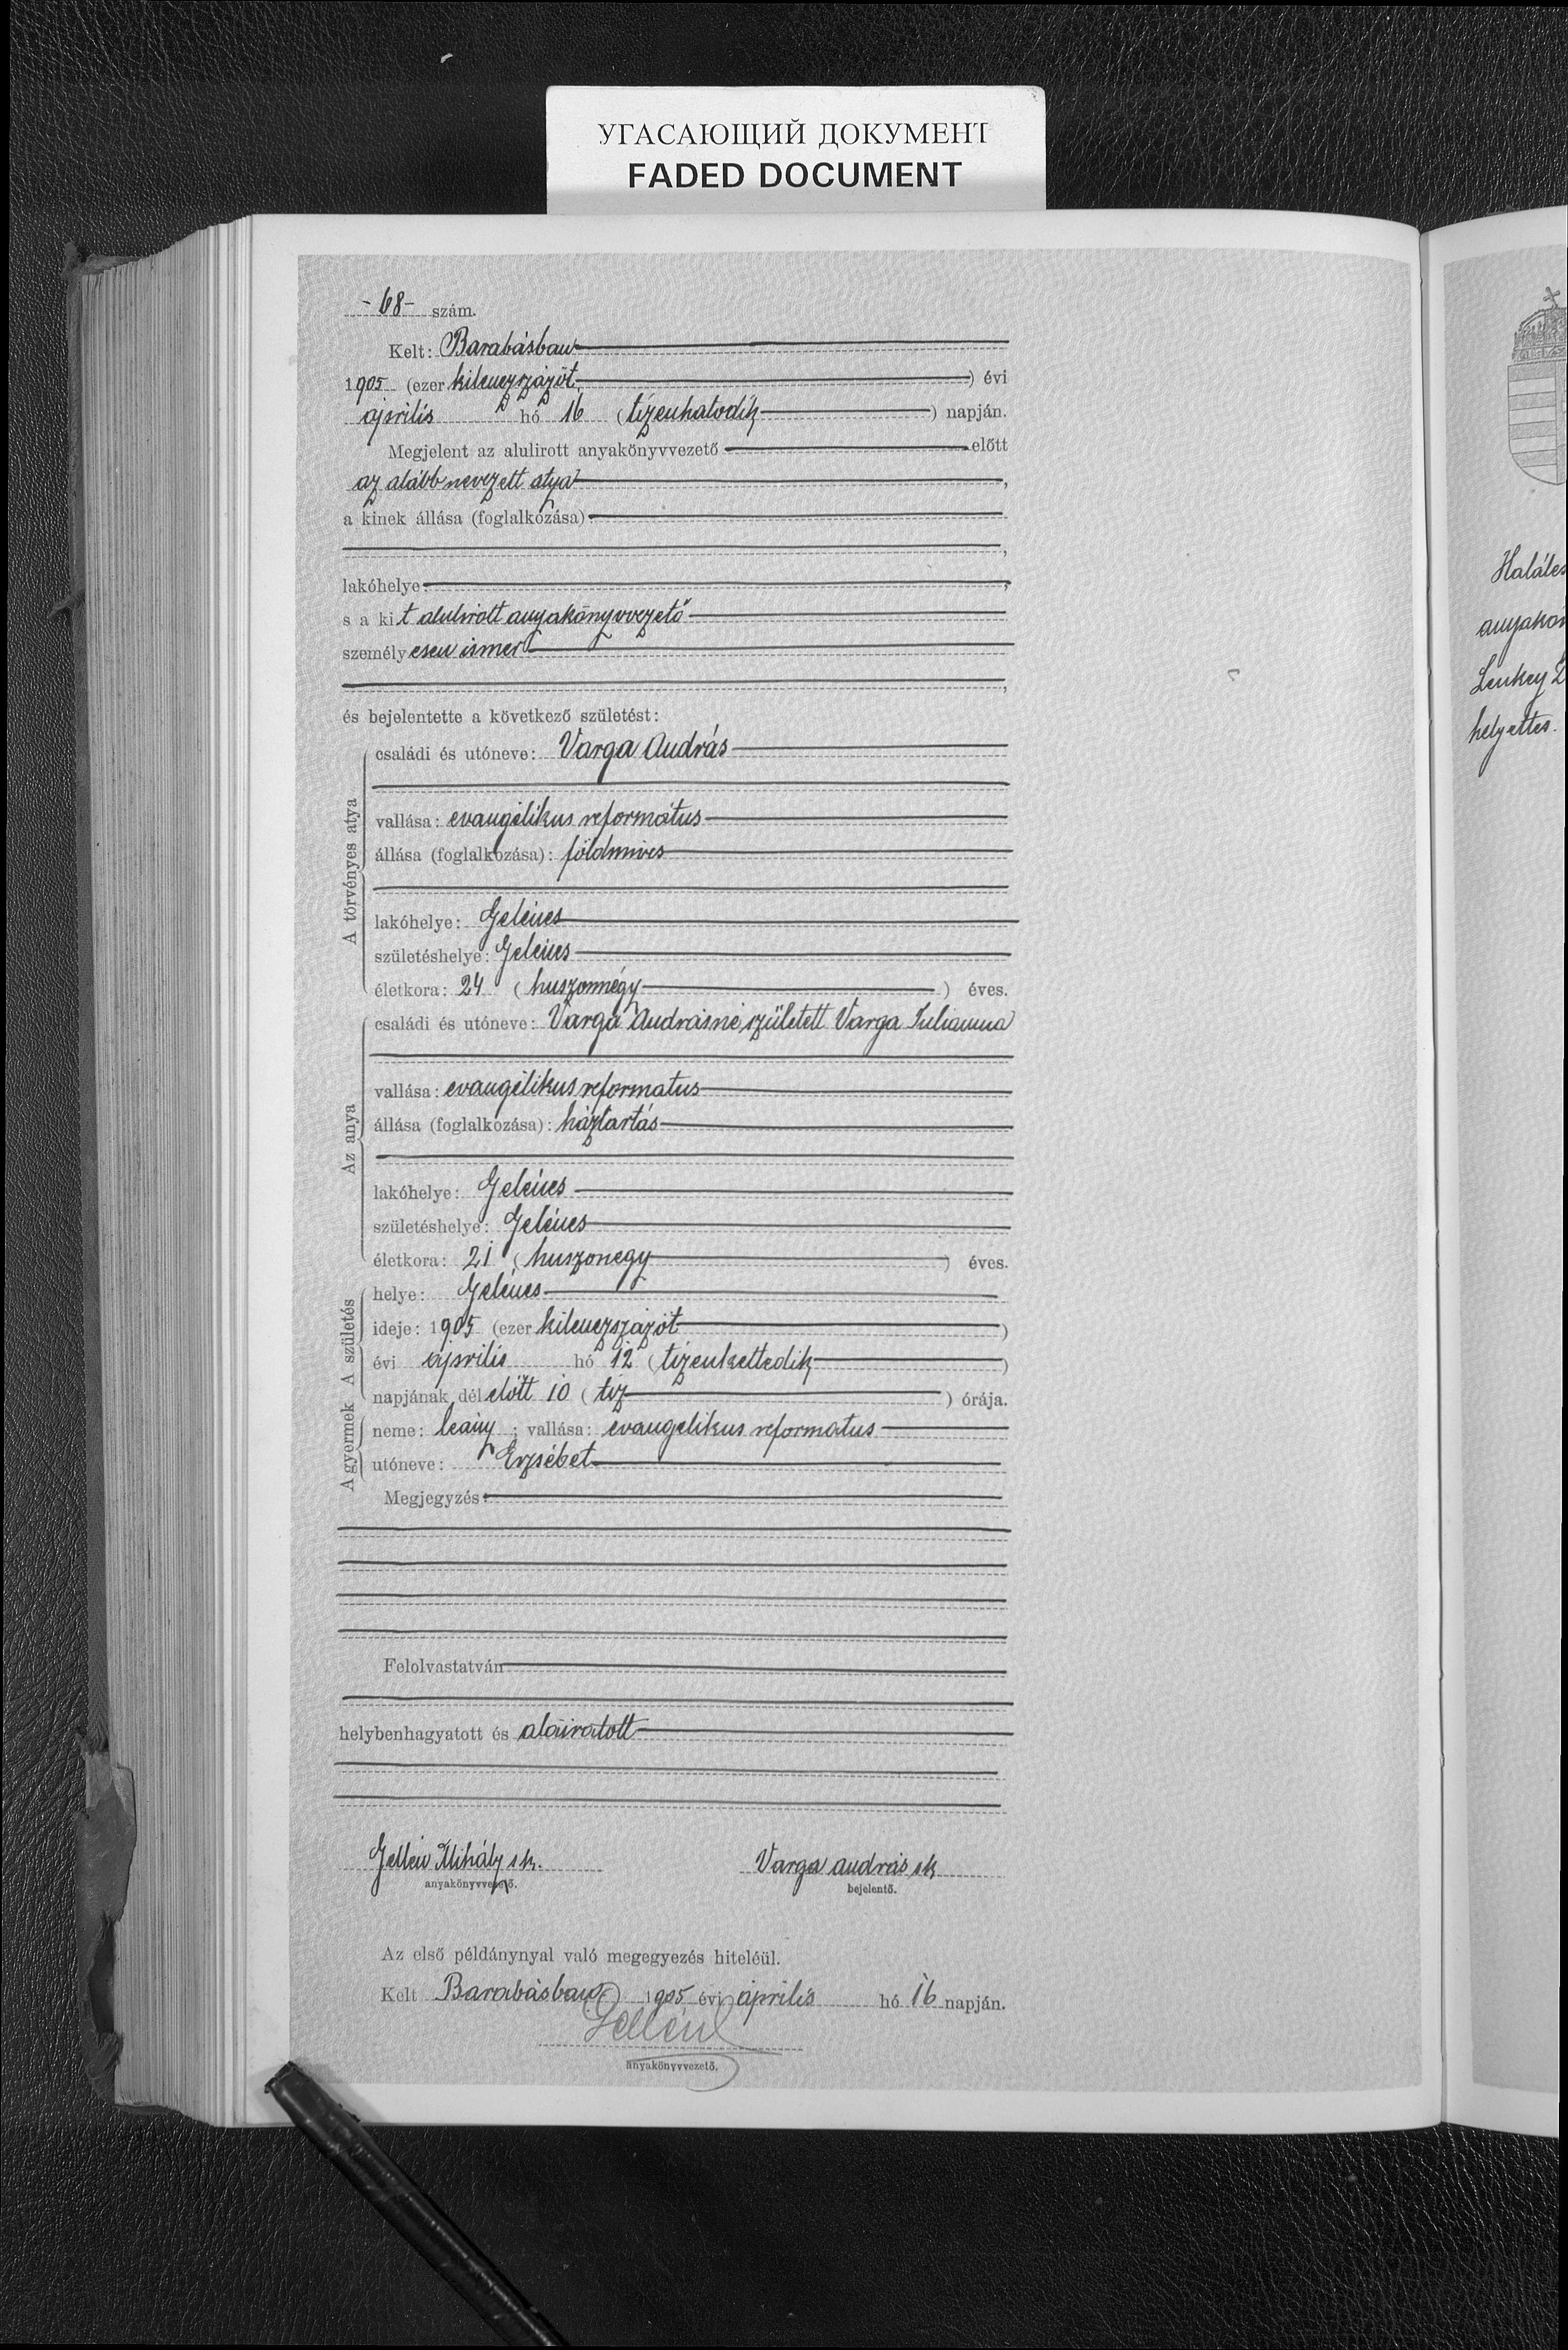 УГАСАЮЩИЙ ДОКУМЕНТ
FADED DOCUMENT
- 68 - szám.
Kelt: Barabásban
1905 (ezer kilenczszázöt) évi
április hó 16 (tizenhatodik) napján.
Megjelent az alulirott anyakönyvvezető előtt
az alább nevezett atya,
a kinek állása (foglalkozása):
,
lakóhelye: ,
s a kit alulirott anyakönyvvezető
személyesen ismer
,
és bejelentette a következő születést:
A törvényes atya
családi és utóneve: Varga András
vallása: evangélikus református
állása (foglalkozása): földmives
lakóhelye: Gelénes
születéshelye: Gelénes
életkora: 24 (huszonnégy) éves.
Az anya
családi és utóneve: Varga Andrásné, született Varga Julianna
vallása: evangélikus reformatus
állása (foglalkozása): háztartás
lakóhelye: Gelénes
születéshelye: Gelénes
életkora: 21 (huszonegy) éves.
A születés
helye: Gelénes
ideje: 1905 (ezer kilenczszázöt)
évi április hó 12 (tizenkettedik)
napjának délelőtt 10 (tiz) órája.
A gyermek
neme: leány; vallása: evangelikus reformatus
utóneve: Erzsébet
Megjegyzés:
Felolvastatván
helybenhagyatott és aláiratott
Gellén Mihály sk. Varga András sk
anyakönyvvezető. bejelentő.
Az első példánynyal való megegyezés hiteléül.
Kelt Barabásban 1905 évi április hó 16 napján.
Gellén
anyakönyvvezető.
Haláles
anyakön
Lenkey L
helyettes.